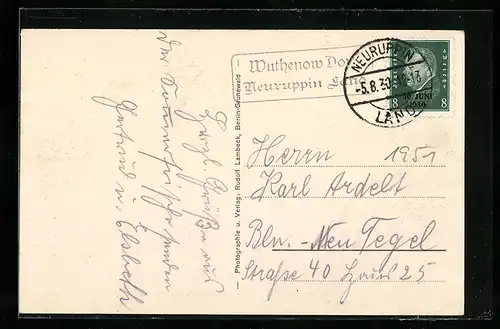 Herzl. Grüße aus
der Sommerfrische senden
Gertrud u. Elsbeth
Photographie u. Verlag: Rudolf Lambeck, Berlin-Grunewald
Wuthenow Dorf
Neuruppin Land
NEURUPPIN
-5.8.30
LAND
30. JUNI
1930
8 8
Herrn 1951
Karl Ardelt
Bln.-Neu Tegel
Straße 40 Haus 25